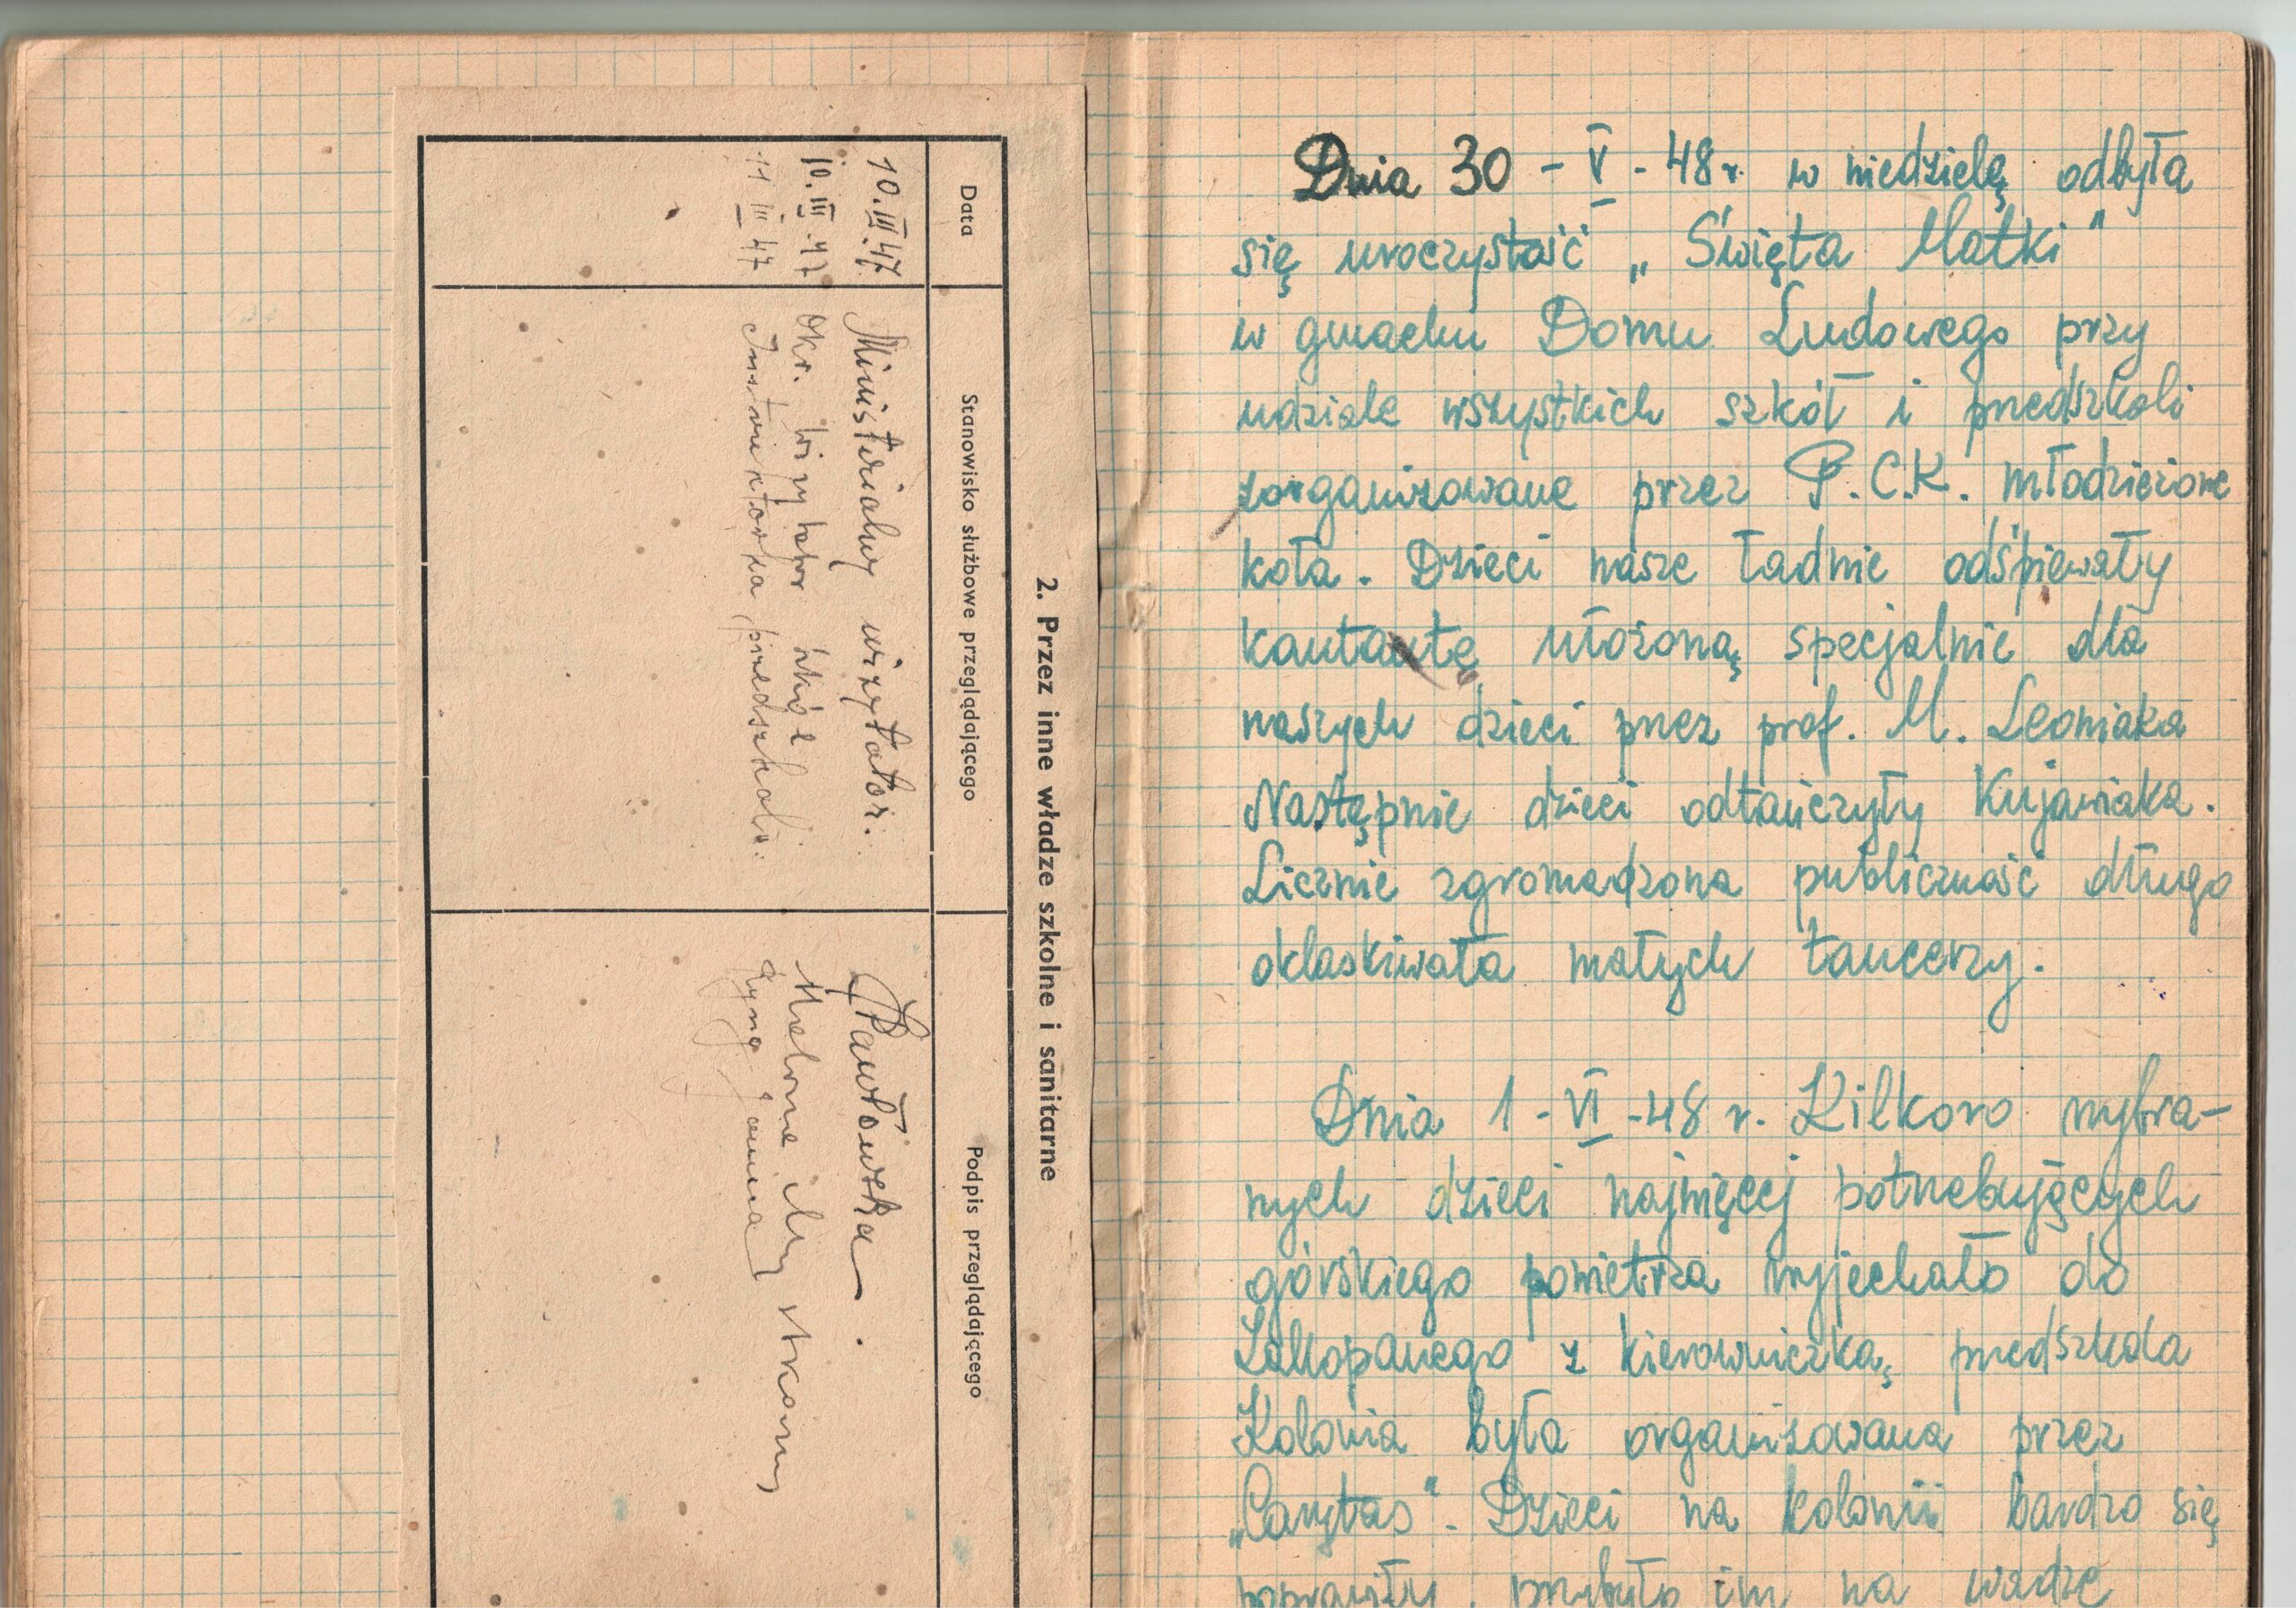 2. Przez inne władze szkolne i sanitarne
Data Stanowisko służbowe przeglądającego Podpis przeglądającego
10.III.47. Ministerialny wizytator. Pawłowska.
10.III.47 Okr. wizytator szkół
11 III 47 Instruktorka przedszkoli.
Dnia 30-V-48 r. w niedzielę odbyła
się uroczystość „Święta Matki"
w gmachu Domu Ludowego przy
udziale wszystkich szkół i przedszkoli
zorganizowane przez P.C.K. młodzieżowe
koła. Dzieci nasze ładnie odśpiewały
kantatę ułożoną specjalnie dla
naszych dzieci przez prof. M. Leoniaka
Następnie dzieci odtańczyły Kujawiaka.
Licznie zgromadzona publiczność długo
oklaskiwała małych tancerzy.
Dnia 1-VI-48 r. Kilkoro wybra-
nych dzieci najwięcej potrzebujących
górskiego powietrza wyjechało do
Zakopanego z kierowniczką przedszkola
Kolonia była organizowana przez
„Carytas". Dzieci na kolonii bardzo się
poprawiły, przybyło im na wadze